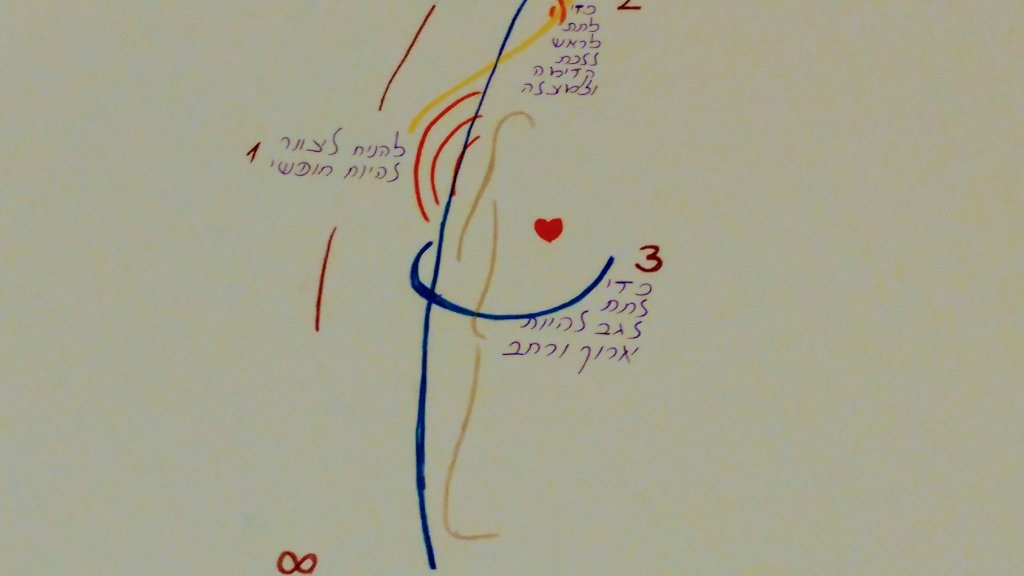 2
כדי
לתת
לראש
ללכת
קדימה
ולמעלה
1
להניח לצוואר
להיות חופשי
3
כדי
לתת
לגב להיות
ארוך ורחב
∞